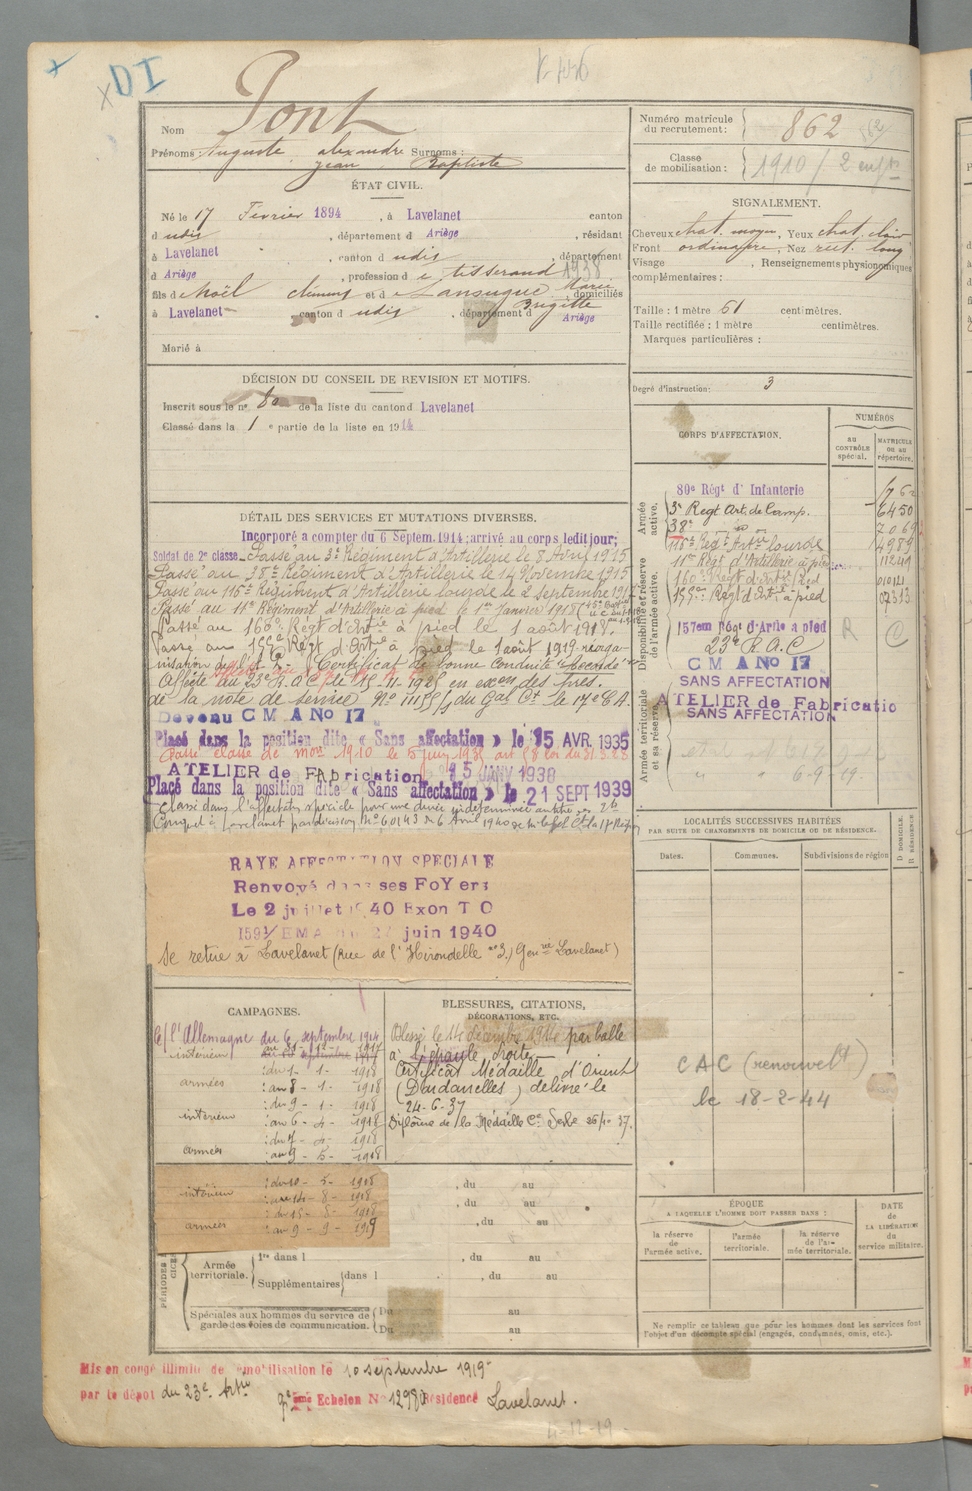 DI
Nom Pont
Prénoms : Auguste alexandre Jean Surnoms : Baptiste
Numéro matricule du recrutement : 862
Classe de mobilisation : 1910 / 2 enfts
ÉTAT CIVIL.
Né le 17 Février 1894, à Lavelanet canton
d udis, département d Ariège, résidant
à Lavelanet, canton d udis, département
d Ariège, profession d e tisserand 1938
fils d e Noël Clément et d e Lansuque Marie Brigitte domiciliés
à Lavelanet canton d udis, département d Ariège
Marié à
SIGNALEMENT.
Cheveux chat. moyen, Yeux chat. clair
Front ordinaire, Nez rect. long
Visage , Renseignements physionomiques
complémentaires :
Taille : 1 mètre 51 centimètres.
Taille rectifiée : 1 mètre centimètres.
Marques particulières :
Degré d'instruction : 3
DÉCISION DU CONSEIL DE REVISION ET MOTIFS.
Inscrit sous le n° 80 de la liste du canton d Lavelanet
Classé dans la 1 e partie de la liste en 1914
CORPS D'AFFECTATION.
NUMÉROS
au CONTRÔLE spécial.
MATRICULE ou au répertoire.
Armée active.
Disponibilité et réserve de l'armée active.
Armée territoriale et sa réserve
80e Régt d'Infanterie
3e Regt Art. de Camp. 6450
38e
116e Regt Artie lourde 4989
11e Regt d'Artillerie à pied
160e Regt d'Artie à pied
155e Regt d'Artie à pied
157em Régt d'Artie à pied
23e R.A.C R C
C M A No 17
SANS AFFECTATION
ATELIER de Fabricatio
SANS AFFECTATION
6-9-19.
DÉTAIL DES SERVICES ET MUTATIONS DIVERSES.
Incorporé a compter du 6 Septem. 1914; arrivé au corps ledit jour;
Soldat de 2e classe. Passé au 3e Régiment d'Artillerie le 8 Avril 1915
Passé au 38e Régiment d'Artillerie le 14 Novembre 1915
Passé au 116e Régiment d'Artillerie lourde le 2 septembre 191
Passé au 11e Régiment d'Artillerie à pied le 1er Janvier 1918
Passé au 160e Régt d'Artie à pied le 1 août 1919.
Passé au 155e Régt d'Artie à pied le 1 août 1919 réorga-
nisation de l'Artie. Certificat de bonne conduite "accordé"
Affecté au 23e R.A.C le 15.11.1925 en exon des pres.
de la note de service No 11155/5 du Gal Ct le 17e C.A.
Devenu C M A No 17
Placé dans la position dite « Sans affectation » le 15 AVR. 1935
Passé classe de mon 1910 le 5 juin 1935 art 58 loi du 31.3.28
ATELIER de FAbrication 15 JANV 1938
Placé dans la position dite « Sans affectation » le 21 SEPT 1939
Classé dans l'affectation spéciale pour une durée indéterminée
à Lavelanet par décision No 60143 du 6 Avril 1940
RAYE AFFECTATION SPECIALE
Renvoyé dans ses FoYers
Le 2 juillet 1940 Exon T O
1593/EMA du 27 juin 1940
Se retire à Lavelanet (Rue de l'Hirondelle no 3.) Genrie Lavelanet)
LOCALITÉS SUCCESSIVES HABITÉES
PAR SUITE DE CHANGEMENTS DE DOMICILE OU DE RÉSIDENCE.
Dates.
Communes.
Subdivisions de région
D DOMICILE.
R RÉSIDENCE
CAC (renouvelt)
le 18-2-44
CAMPAGNES.
C/ l'Allemagne du 6 septembre 1914
intérieur
:du 1 - 1 - 1918
armées :au 8 - 1 - 1918
:du 9 - 1 - 1918
intérieur :au 6 - 4 - 1918
:du 7 - 4 - 1918
armées :au 9 - 5 - 1918
:du 10 - 5 - 1918
intérieur :au 14 - 8 - 1918
:du 15 - 8 - 1918
armées :au 9 - 9 - 1919
BLESSURES, CITATIONS,
DÉCORATIONS, ETC.
Blessé le 14 décembre 1914 par balle
à l'épaule droite
Certificat Médaille d'Orient
(Dardanelles) délivré le
24-6-37
Diplôme de la Médaille Cve Serbe 26/4-37.
, du au
, du au
, du au
PÉRIODES
Armée territoriale.
1re dans l , du au
Supplémentaires dans l , du au
Spéciales aux hommes du service de
garde des voies de communication.
Du au
Du au
ÉPOQUE
A LAQUELLE L'HOMME DOIT PASSER DANS :
la réserve de l'armée active.
l'armée territoriale.
la réserve de l'armée territoriale.
DATE de LA LIBÉRATION du service militaire.
Ne remplir ce tableau que pour les hommes dont les services font
l'objet d'un décompte spécial (engagés, condamnés, omis, etc.).
Mis en congé illimité de démobilisation le 10 septembre 1919
par le dépôt du 23e Artie
Echelon No 12980 Résidence Lavelanet.
4-12-19